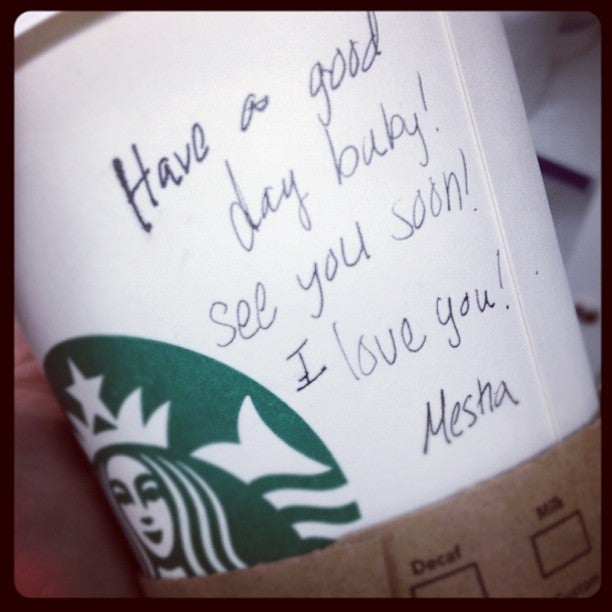 Have a good
day baby!
see you soon!
I love you!
Mesha
Decaf
Milk
Custom